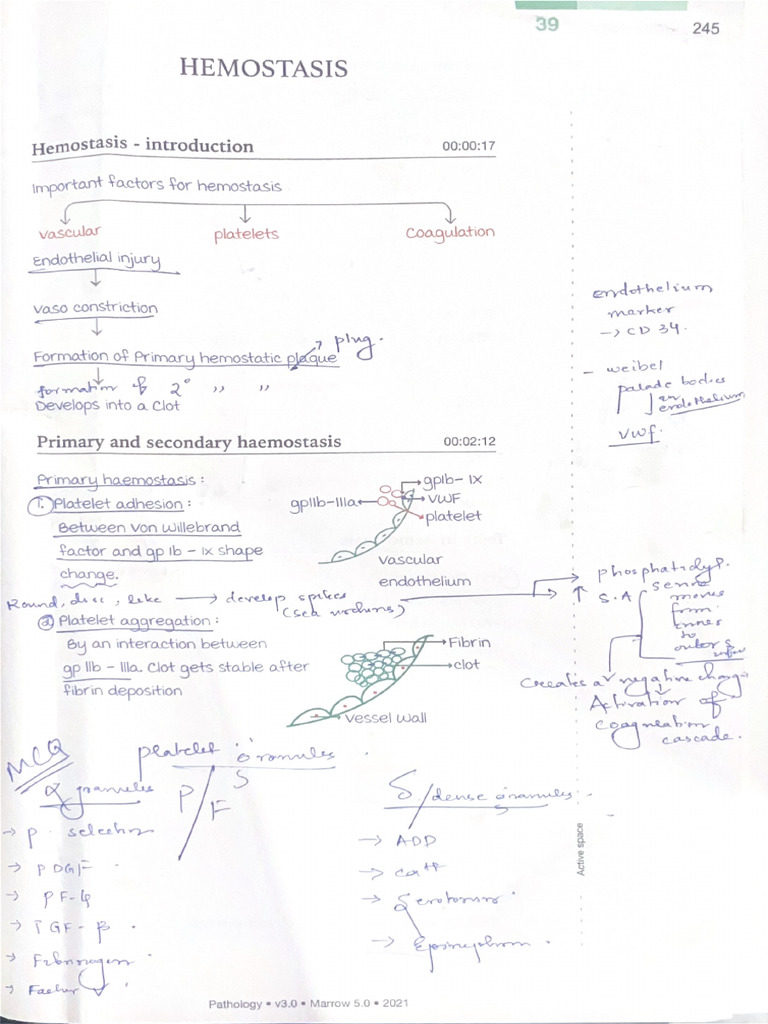 39
245
HEMOSTASIS
Hemostasis - introduction 00:00:17
Important factors for hemostasis
vascular platelets Coagulation
Endothelial injury
vaso constriction
Formation of Primary hemostatic plaque
plug.
formation of 2° ,, ,,
Develops into a Clot
endothelium
marker
→ CD 34.
- weibel
palade bodies
in
endothelium
vwf.
Primary and secondary haemostasis 00:02:12
Primary haemostasis :
1. Platelet adhesion :
Between von willebrand
factor and gp Ib - ix shape
change.
gpIb- IX
gpIIb-IIIa
VWF
platelet
vascular
endothelium
Round, disc, like → develop spikes
(sea urchins)
↑ S.A
phosphatidyl
serine
moves
from
inner
to
outer
creates a negative charge
Activation of
coagulation
cascade.
2 Platelet aggregation :
By an interaction between
gp IIb - IIIa. Clot gets stable after
fibrin deposition
Fibrin
clot
vessel wall
MCQ
platelet Granules
α granules
P/F
S
→ P. selectin
→ PDGF
→ PF-4
→ TGF-β
→ Fibrinogen
→ Factor V
δ/dense granules
→ ADD
→ Ca++
→ Serotonin
→ Epinephrin
Active space
Pathology • v3.0 • Marrow 5.0 • 2021